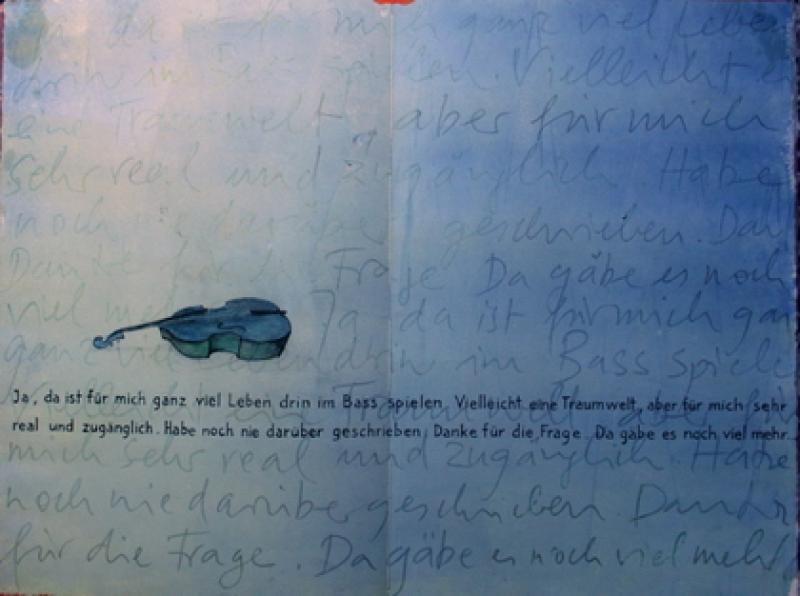 Ja da ist für mich ganz viel Leben
drin im Bass spielen. Vielleicht
eine Traumwelt, aber für mich
sehr real und zugänglich. Habe
noch nie darüber geschrieben. Dan
Danke für die Frage Da gäbe es noch
viel mehr Ja da ist für mich gan
ganz viel Leben drin im Bass spiele
Ja, da ist für mich ganz viel Leben drin im Bass spielen. Vielleicht eine Traumwelt, aber für mich sehr
real und zugänglich. Habe noch nie darüber geschrieben. Danke für die Frage. Da gäbe es noch viel mehr.
mich sehr real und zugänglich. Habe
noch nie darüber geschrieben. Danke
für die Frage. Da gäbe es noch viel mehr.